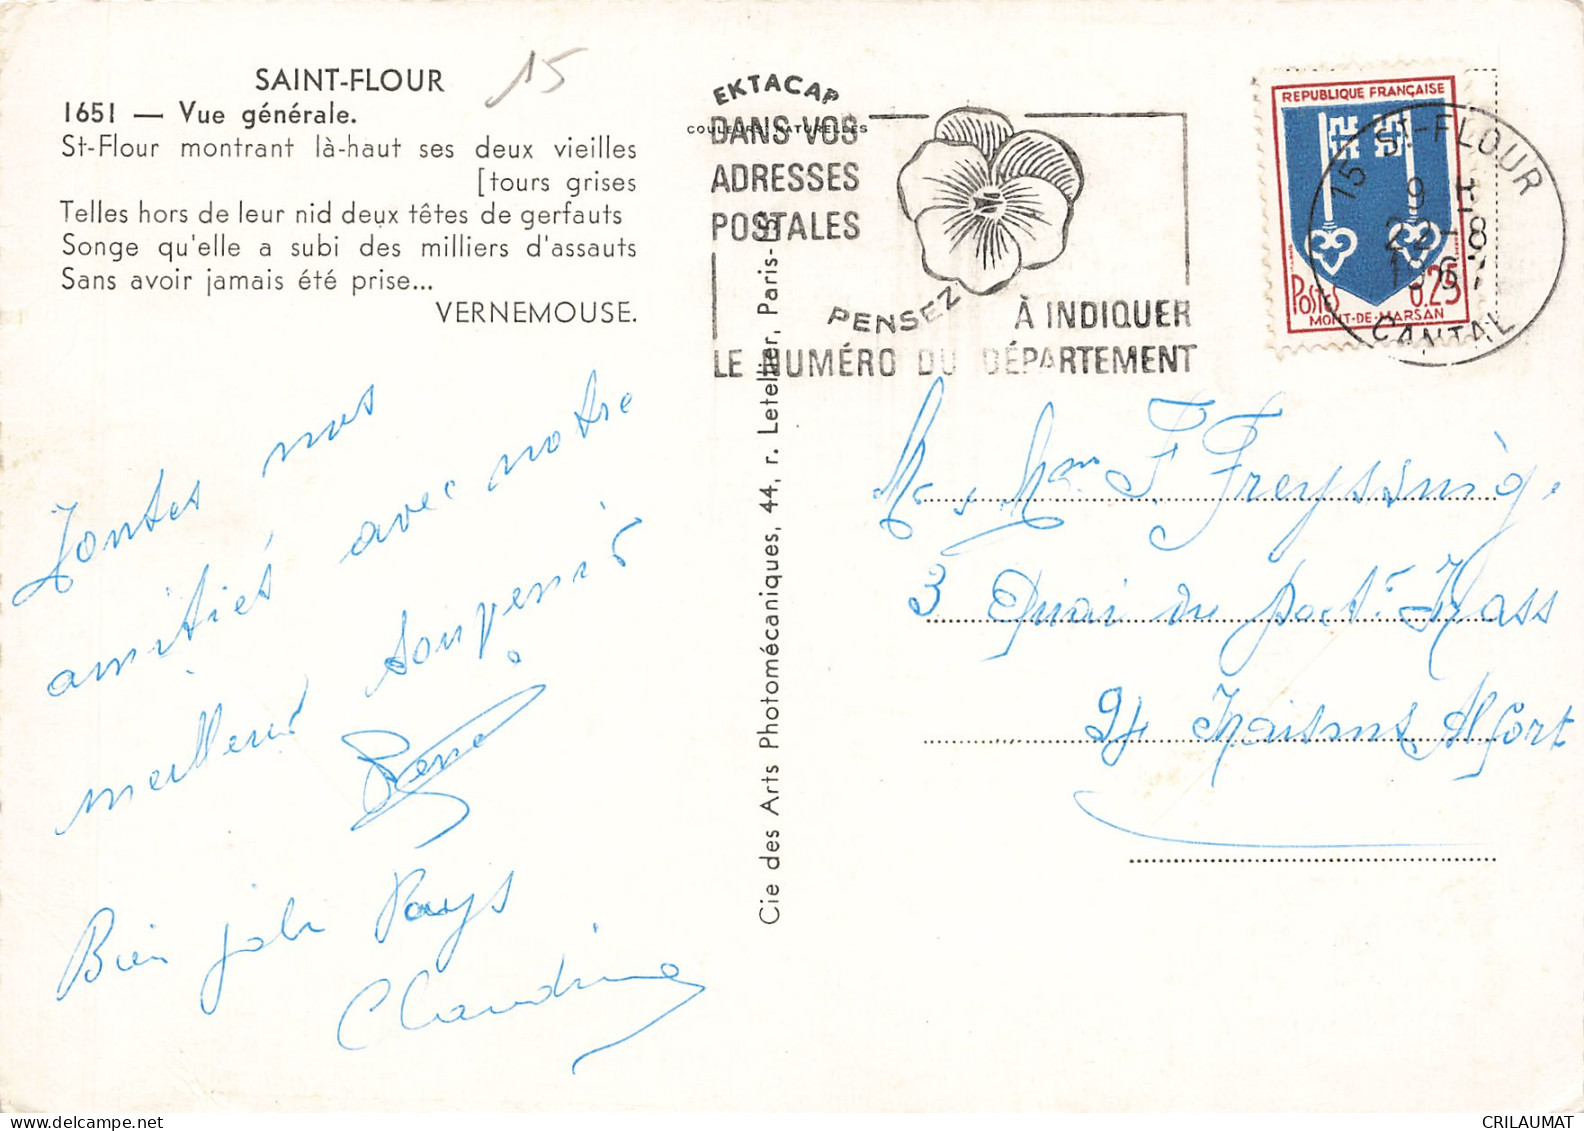 SAINT-FLOUR
15
1651 — Vue générale.
St-Flour montrant là-haut ses deux vieilles
[tours grises
Telles hors de leur nid deux têtes de gerfauts
Songe qu'elle a subi des milliers d'assauts
Sans avoir jamais été prise...
VERNEMOUSE.
Toutes nos
amitiés avec notre
meilleur souvenir
René
Bien joli Pays
Claudine
EKTACAP
COULEURS NATURELLES
DANS VOS
ADRESSES
POSTALES
PENSEZ
À INDIQUER
LE NUMÉRO DU DÉPARTEMENT
Cie des Arts Photomécaniques, 44, r. Letellier, Paris-15
REPUBLIQUE FRANÇAISE
POSTES 0.25
MONT-DE-MARSAN
15 St-FLOUR
9 H
22-8
1967
CANTAL
Mr. & Mme F. Freyssinig.
3 Quai du Port
94 Maisons Alfort
CRILAUMAT